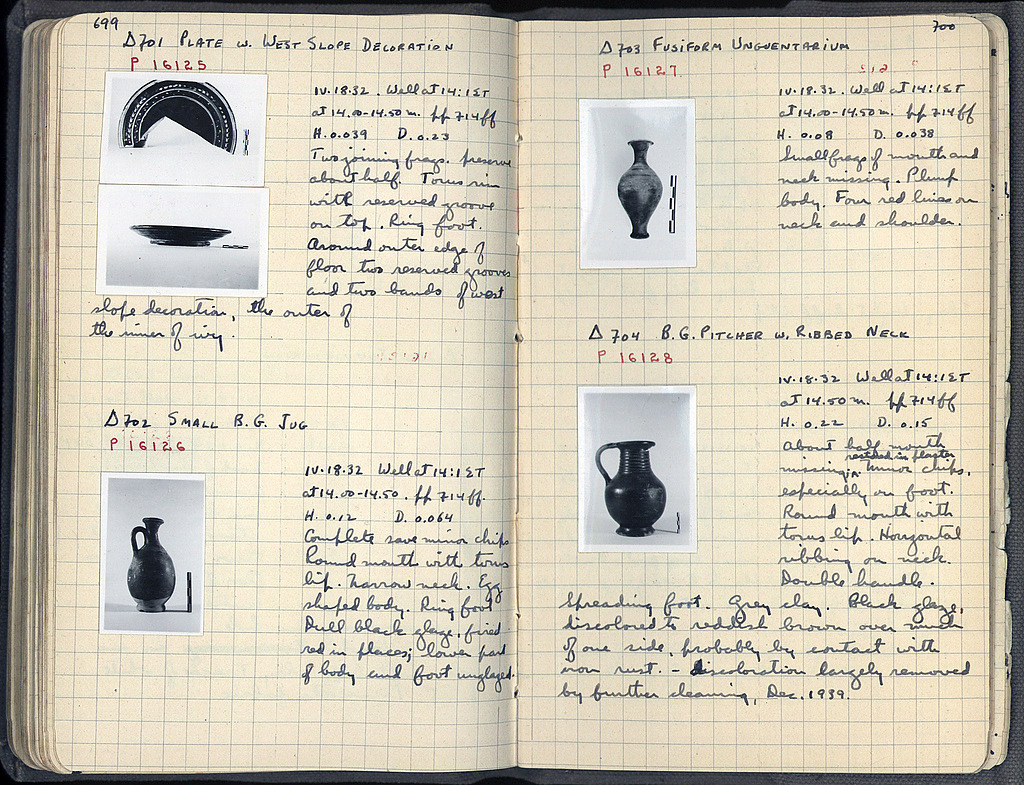 699
Δ701 PLATE W. WEST SLOPE DECORATION
P 16125
IV.18.32. Well at 14:1ΣΤ
at 14.00-14.50 m. pp 714 ff
H. 0.039 D. 0.23
Two joining frags. preserve
about half. Torus rim
with reserved groove
on top. Ring foot.
Around outer edge of
floor two reserved grooves
and two bands of west
slope decoration, the outer of
the inner of ivy.
Δ702 SMALL B.G. JUG
P 16126
IV.18.32 Well at 14:1ΣΤ
at 14.00-14.50. pp 714 ff.
H. 0.12 D. 0.064
Complete save minor chips
Round mouth with torus
lip. Narrow neck. Egg
shaped body. Ring foot
Dull black glaze, fired
red in places; lower part
of body and foot unglazed.
700
Δ703 FUSIFORM UNGUENTARIUM
P 16127
IV.18.32. Well at 14:1ΣΤ
at 14.00-14.50 m. pp 714 ff
H. 0.08 D. 0.038
Small frags of mouth and
neck missing. Plump
body. Four red lines on
neck and shoulder.
Δ704 B.G. PITCHER W. RIBBED NECK
P 16128
IV.18.32 Well at 14:1ΣΤ
at 14.50 m. pp 714 ff
H. 0.22 D. 0.15
About half mouth
restored in plaster
missing, minor chips,
especially on foot.
Round mouth with
torus lip. Horizontal
ribbing on neck.
Double handle.
Spreading foot. Grey clay. Black glaze,
discolored to reddish brown over much
of one side, probably by contact with
iron rust. - discoloration largely removed
by further cleaning, Dec. 1939.